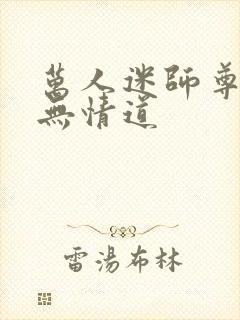 萬人迷師尊
無情道
雷湯布林